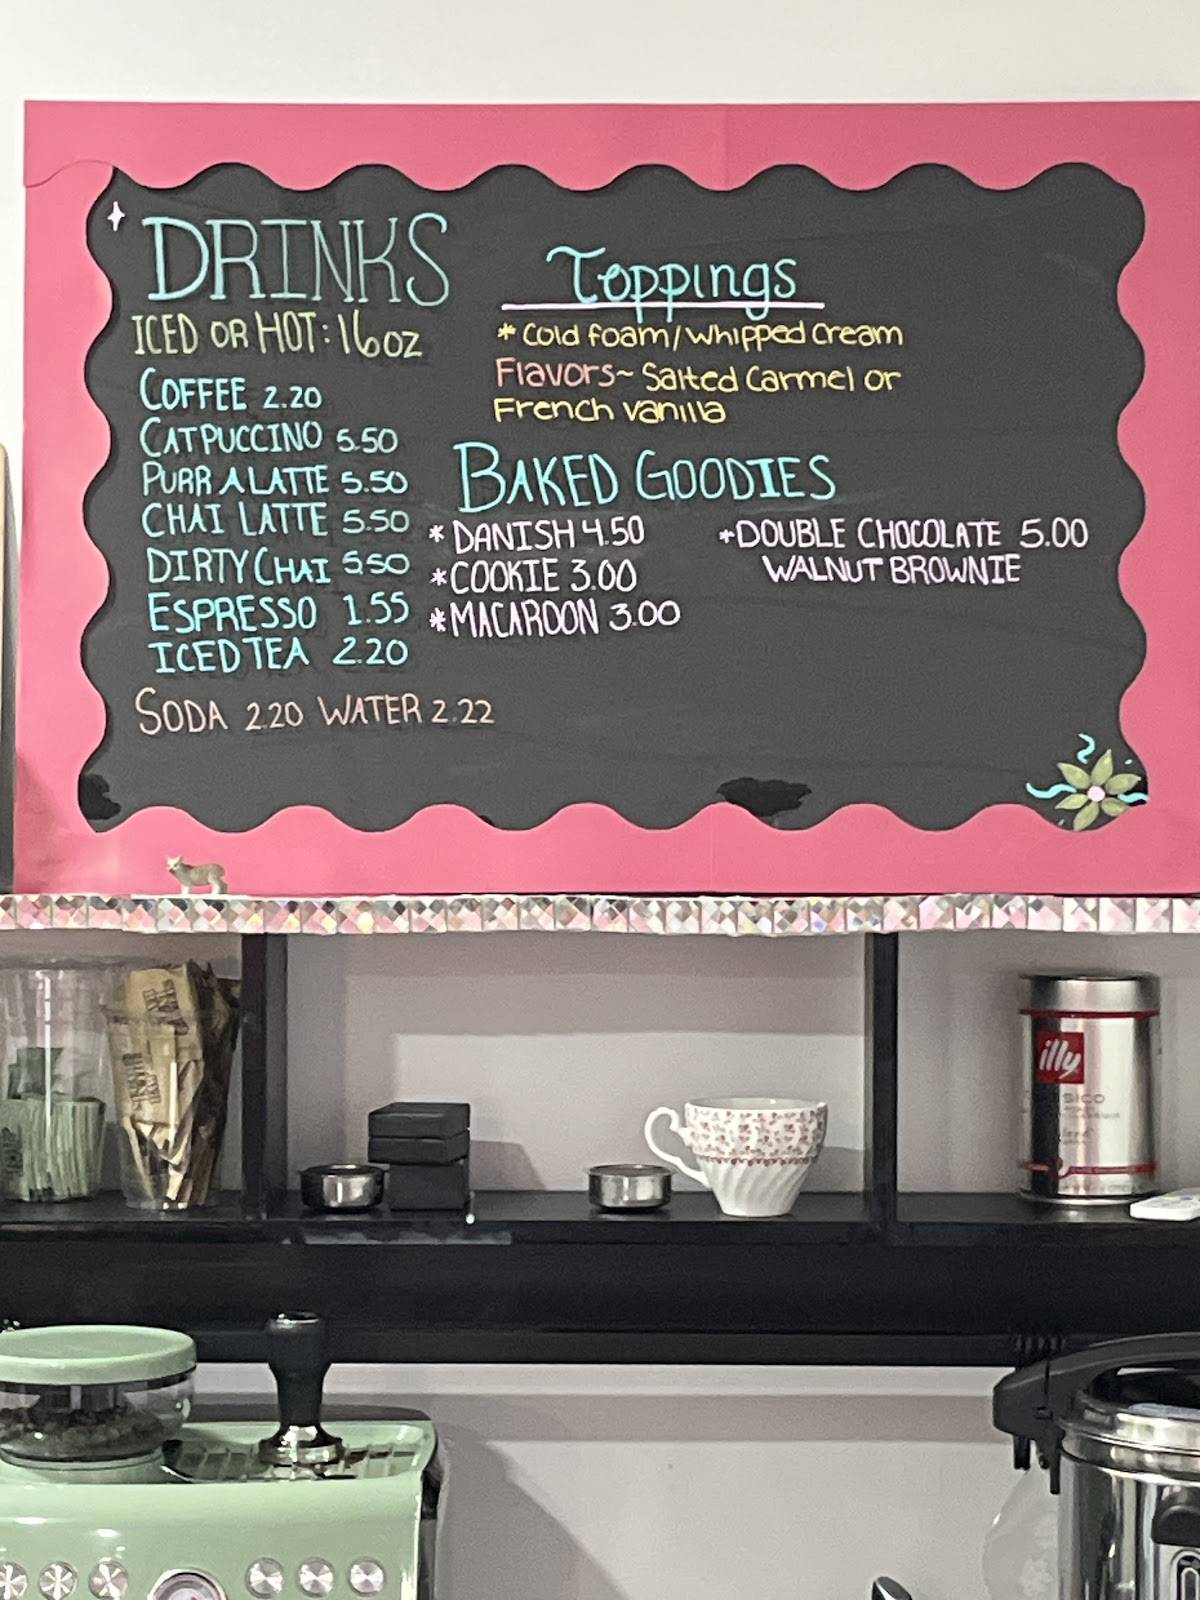 DRINKS
ICED OR HOT: 16oz
COFFEE 2.20
CATPUCCINO 5.50
PURR A LATTE 5.50
CHAI LATTE 5.50
DIRTY CHAI 5.50
ESPRESSO 1.55
ICED TEA 2.20
SODA 2.20 WATER 2.22
Toppings
* Cold foam/Whipped Cream
Flavors~ Salted Carmel or
French Vanilla
BAKED GOODIES
* DANISH 4.50
* COOKIE 3.00
* MACAROON 3.00
* DOUBLE CHOCOLATE 5.00
WALNUT BROWNIE
illy